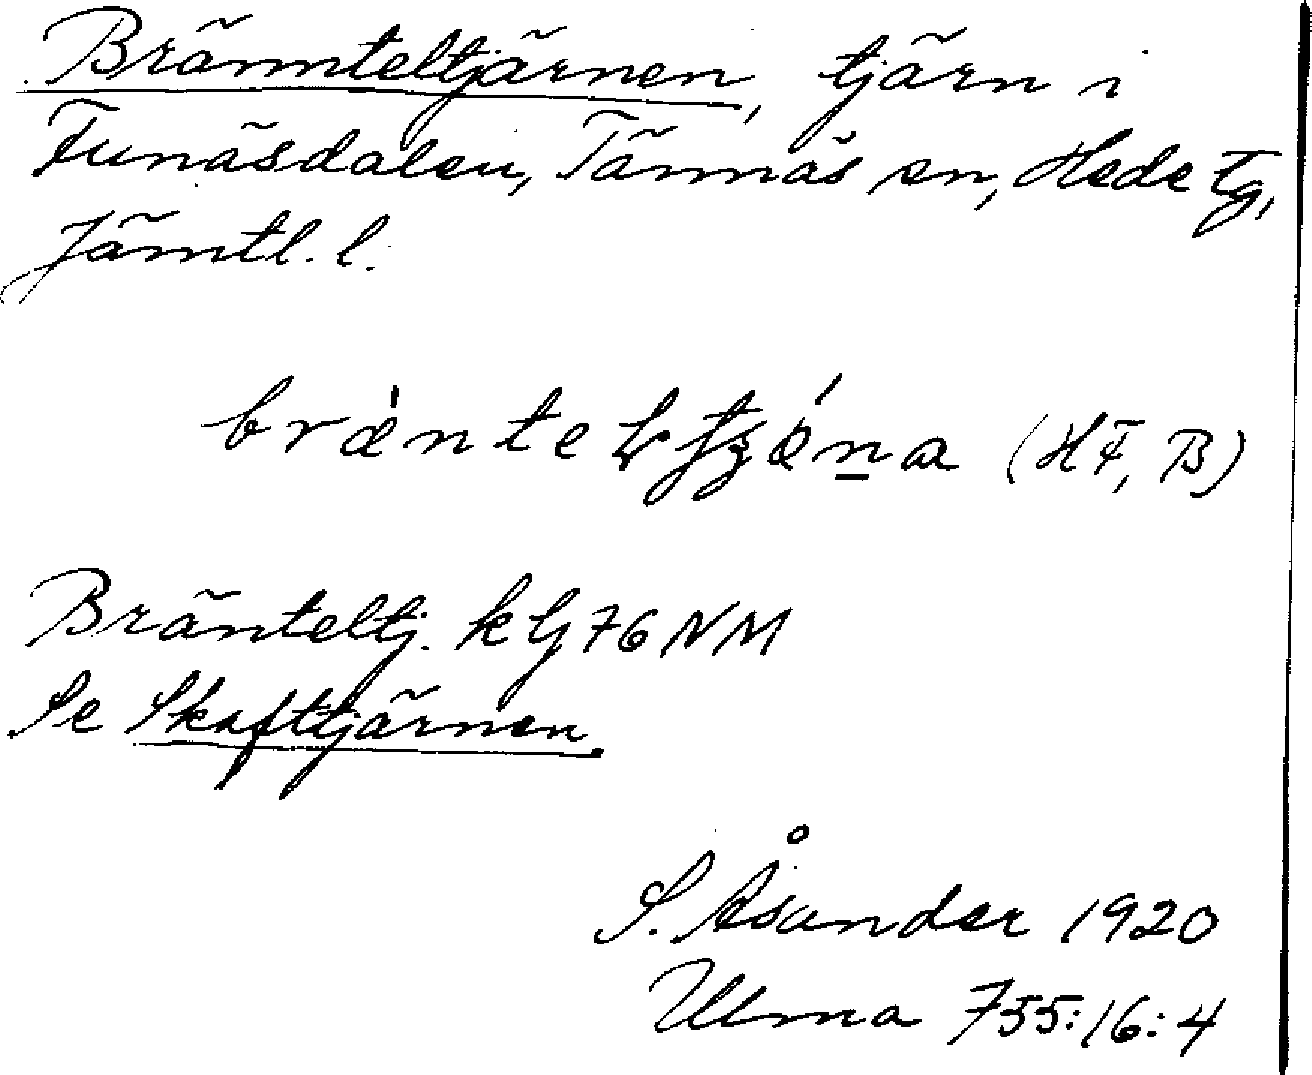 Bränteltjärnen, tjärn i
Funäsdalen, Tännäs sn, Hede tg,
Jämtl. l.
(HF, B)
Bränteltj. k Lj 76 NM
Se Skafttjärnen.
S. Åsander 1920
Ulma 755:16:4